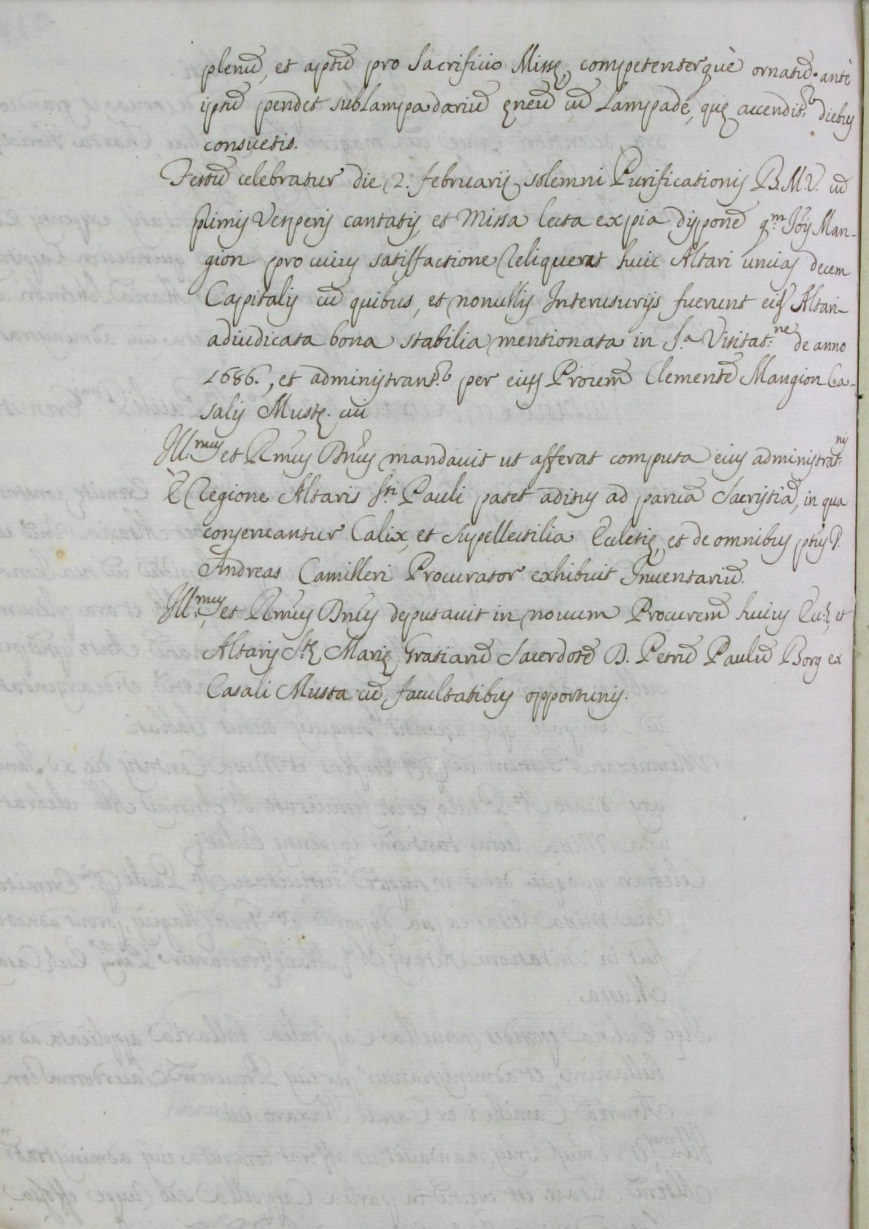 plenū, et aptū pro Sacrificio Missę, competenterquè ornatū. antè
ipsū pendet sublampadariū ęneū cū Lampade, quę accendit.r diebus
consuetis.
Festū celebratur die 2. februarij solemni Purificationis B.M.V. cū
primis Vesperis cantatis et Missa lecta ex pia disponē q.m Jōis Man-
gion pro cuius satisfactione reliquerat huic Altari uncias decem
Capitalis cū quibus, et nonullis Interusurijs fuerunt eid Altari
adiudicata bona stabilia mentionata in S.a Visitat.ne de anno
1686., et administrant.r per eius Procrem Clementē Mangion Ca-
salis Mustę. cui
Ill.mus et Rmūs Dnūs mandavit ut afferat computa eius administrat.nis
È Regione Altaris Sti Pauli patet aditus ad parvā Sacristiā, in qua
conservantur Calix, et supellectilia Ecclesię, et de omnibus ptīs D.
Andreas Camilleri Procurator exhibuit Inventariū.
Ill.mus, et Rmūs Dnūs deputavit in novum Procurem huius Eccl.ę, et
Altaris Stę Marię Gratiarū Sacerdotē D. Petrū Paulū Borg ex
Casali Musta cū facultatibus opportunis.